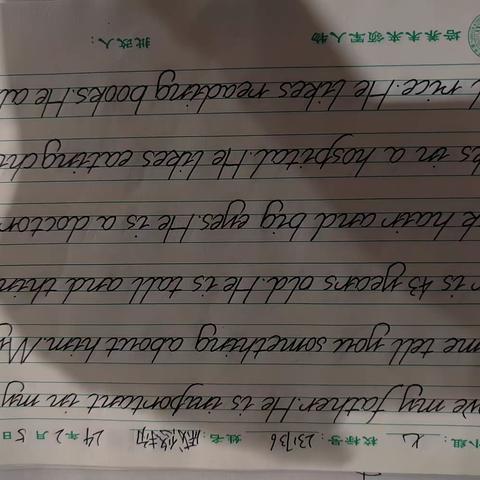 小组: 校标号: 231736 姓名: 24年2月5日
ve my father.He is important in my
me tell you something about him.My
r is 43 years old.He is tall and thin
k hair and big eyes.He is a doctor
ks in a hospital.He likes eating
rice.He likes reading books.He
培养未来领军人物 批改人: